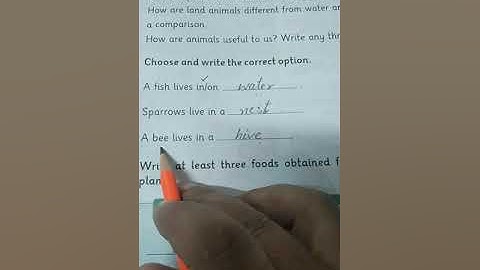 How are land animals different from water
a comparison.
How are animals useful to us? Write any
Choose and write the correct option.
A fish lives in/on water
Sparrows live in a nest
A bee lives in a hive
at least three foods obtained